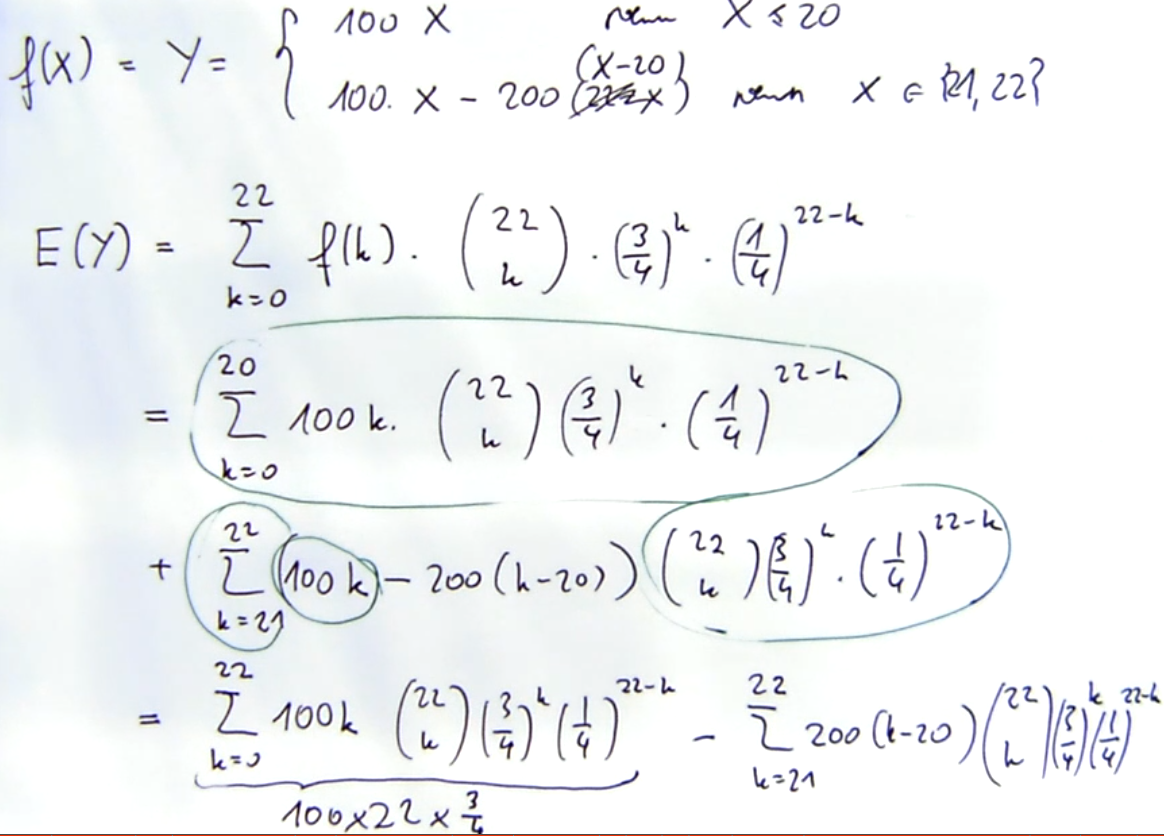 f(X) = Y = { 100 X wenn X ≤ 20
(X-20)
100. X - 200 ( ) wenn X ∈ {21, 22}
E(Y) = ∑_{k=0}^{22} f(k) · (22 k) · (3/4)^k · (1/4)^{22-k}
= ∑_{k=0}^{20} 100 k. (22 k) (3/4)^k · (1/4)^{22-k}
+ ∑_{k=21}^{22} (100 k - 200 (k-20)) (22 k) (3/4)^k · (1/4)^{22-k}
= ∑_{k=0}^{22} 100k (22 k) (3/4)^k (1/4)^{22-k} - ∑_{k=21}^{22} 200 (k-20) (22 k) (3/4)^k (1/4)^{22-k}
100×22×3/4